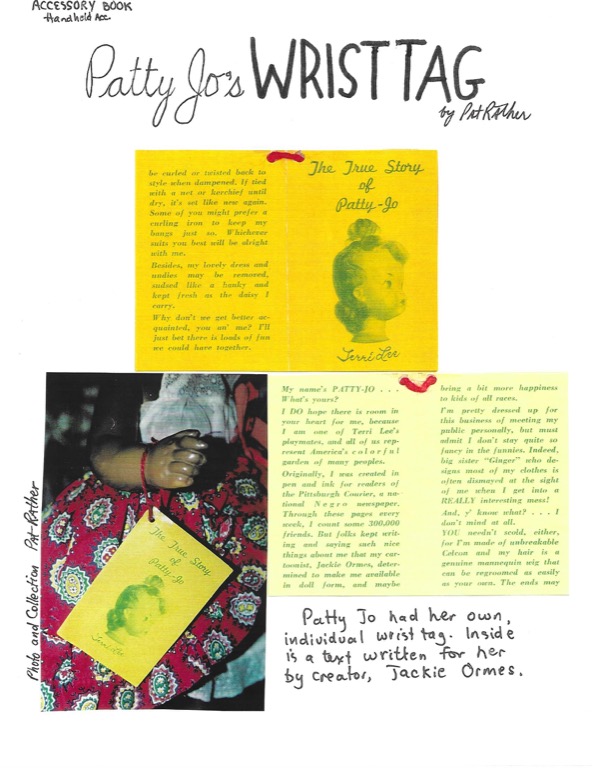 ACCESSORY BOOK
Handhold Acc.
Patty Jo's WRIST TAG
by Pat Rather
be curled or twisted back to
style when dampened. If tied
with a net or kerchief until
dry, it's set like new again.
Some of you might prefer a
curling iron to keep my
bangs just so. Whichever
suits you best will be alright
with me.
Besides, my lovely dress and
undies may be removed,
sudsed like a hanky and
kept fresh as the daisy I
carry.
Why don't we get better ac-
quainted, you an' me? I'll
just bet there is loads of fun
we could have together.
The True Story
of
Patty-Jo
Terri Lee
My name's PATTY-JO . . .
What's yours?
I DO hope there is room in
your heart for me, because
I am one of Terri Lee's
playmates, and all of us rep-
resent America's colorful
garden of many peoples.
Originally, I was created in
pen and ink for readers of
the Pittsburgh Courier, a na-
tional Negro newspaper.
Through these pages every
week, I count some 300,000
friends. But folks kept writ-
ing and saying such nice
things about me that my car-
toonist, Jackie Ormes, deter-
mined to make me available
in doll form, and maybe
being a bit more happiness
to kids of all races.
I'm pretty dressed up for
this business of meeting my
public personally, but must
admit I don't stay quite so
fancy in the funnies. Indeed,
big sister "Ginger" who de-
signs most of my clothes is
often dismayed at the sight
of me when I get into a
REALLY interesting mess!
And, y' know what? . . . I
don't mind at all.
YOU needn't scold, either,
for I'm made of unbreakable
Celcon and my hair is a
genuine mannequin wig that
can be regroomed as easily
as your own. The ends may
The True Story
of
Patty-Jo
Terri Lee
Photo and Collection Pat Rather
Patty Jo had her own,
individual wrist tag. Inside
is a text written for her
by creator, Jackie Ormes.